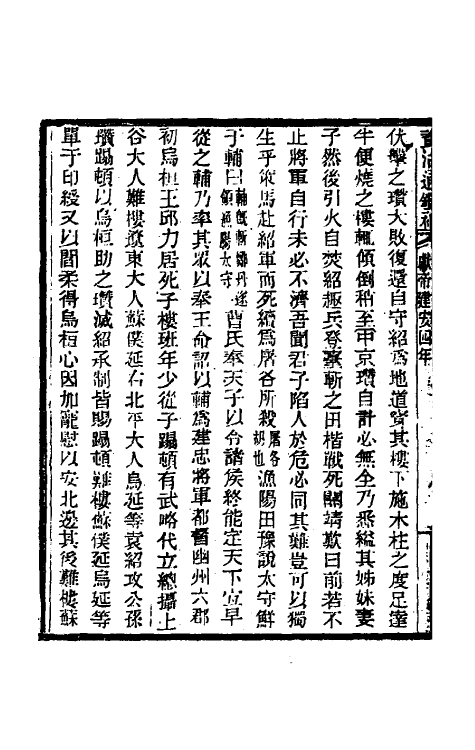 資治通鑑補　獻帝建安四年
伏擊之瓚大敗復還自守紹爲地道穿其樓下施木柱之度足達
半便燒之樓輒傾倒稍至中京瓚自計必無全乃悉縊其姊妹妻
子然後引火自焚紹趣兵登臺斬之田楷戰死關靖歎曰前若不
止將軍自行未必不濟吾聞君子陷人於危必同其難豈可以獨
生乎策馬赴紹軍而死續爲屠各所殺屠各胡也漁陽田豫說太守鮮
于輔曰輔領漁陽太守曹氏奉天子以令諸侯終能定天下宜早
從之輔乃率其眾以奉王命詔以輔爲建忠將軍都督幽州六郡
初烏桓王邱力居死子樓班年少從子蹋頓有武略代立總攝上
谷大人難樓遼東大人蘇僕延右北平大人烏延等袁紹攻公孫
瓚蹋頓以烏桓助之瓚滅紹承制皆賜蹋頓難樓蘇僕延烏延等
單于印綬又以閻柔得烏桓心因加寵慰以安北邊其後難樓蘇